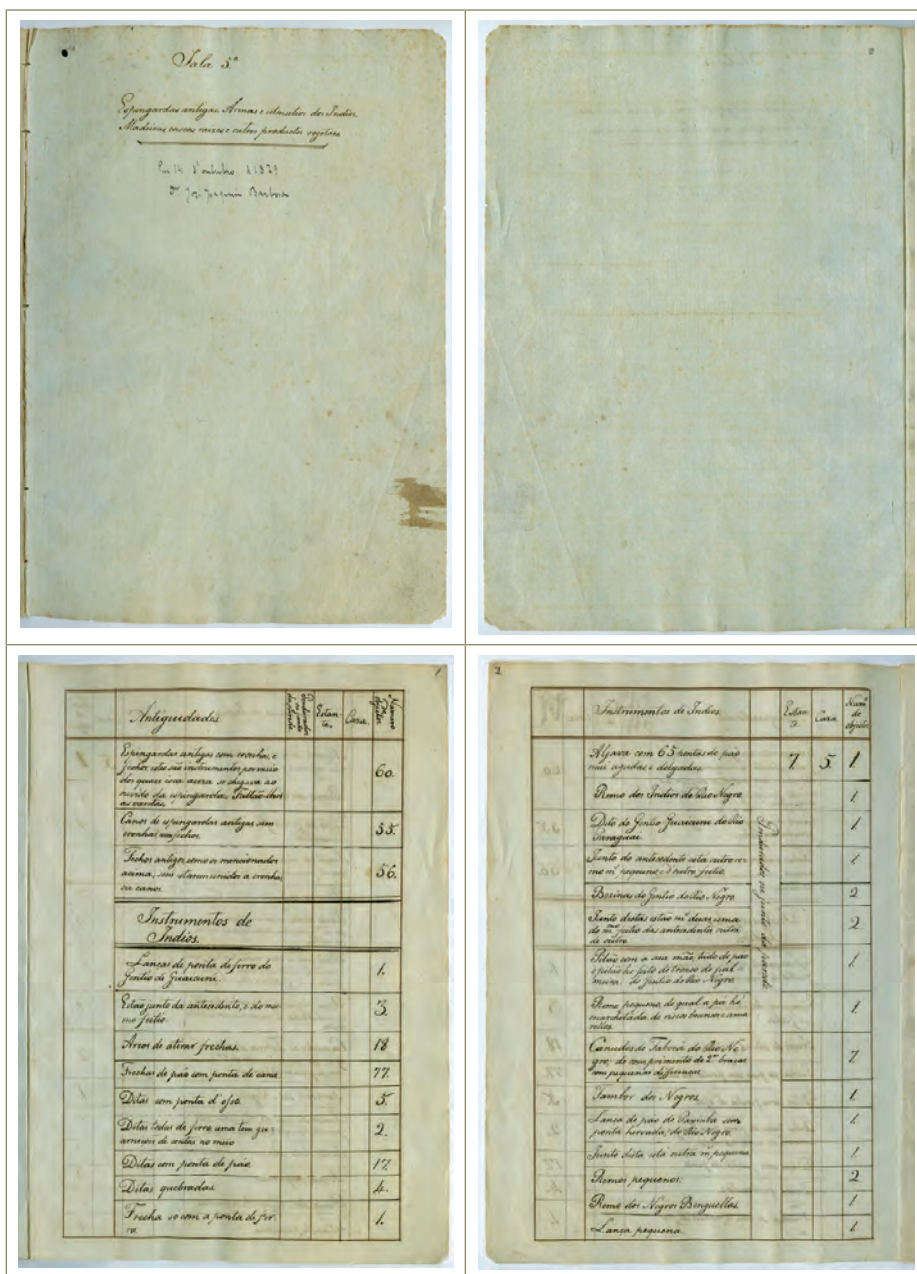 Sala 5ª
Espingardas antigas Armas e utensilios dos Indios
Madeiras cascas raizes e outros productos vegetaes
Em 14 d'outubro d 1829
José Joaquim Barbosa
1
Antiguidades
Estan-
te.
Caxa.
Numero
dos
objectos
Espingardas antigas com cronha, e
fechos estes são instrumentos por meio
dos quaes isca acesa se chegava ao
ouvido da espingarda. Faltão-lhes
as varetas.
60.
Canos de espingardas antigas sem
cronhas nem fechos.
55.
Fechos antigos como os mencionados
acima, sem estarem unidos a cronhas
ou canos.
56.
Instrumentos de
Indios.
Lanças de ponta de ferro do
Gentio de Guaicuru.
1.
Estão junto da antecedente, e do mes-
mo feitio.
3.
Arcos de atirar frechas.
18
Frechas de páo com ponta de cana.
77.
Ditas com ponta d'osso.
5.
Ditas todas de ferro uma tem gu-
arnição de contas no meio
2.
Ditas com ponta de páo.
17.
Ditas quebradas.
4.
Frecha só com a ponta de fer-
ro.
1.
2
Instrumentos de Indios.
Estan-
te.
Caxa.
Num.º
de
objectos
Aljava com 65 pontas de páo
mui agudas e delgadas.
7.
5.
1
Remo dos Indios do Rio Negro.
1.
Dito do Gentio Guaicuru do Rio
Paraguai.
1
Junto do antecedente está outro re-
mo mº pequeno e d'outro feitio.
1
Bozinas do Gentio do Rio Negro.
2
Junto destas estão mº duas uma
do mmo feitio das antecedentes outra
de outro.
2
Pilão com a sua mão, tudo de páo
o pilão he feito do tronco de pal
meira do gentio do Rio Negro.
1.
Remo pequeno, do qual a pá hé
marchetada de riscos brancos e ama
relos.
1
Canudos de Taboca do Rio Ne-
gro, de comprimento de 2 braças
com pequenas differenças.
7
Tambor dos Negros.
1.
Lança de páo de Paxiuba com
ponta hervada, do Rio Negro.
1.
Junto desta está outra mº pequena
1
Remos pequenos.
2
Remo dos Negros Benguellas.
1.
Lança pequena.
1.
Pendurados na junto da parede